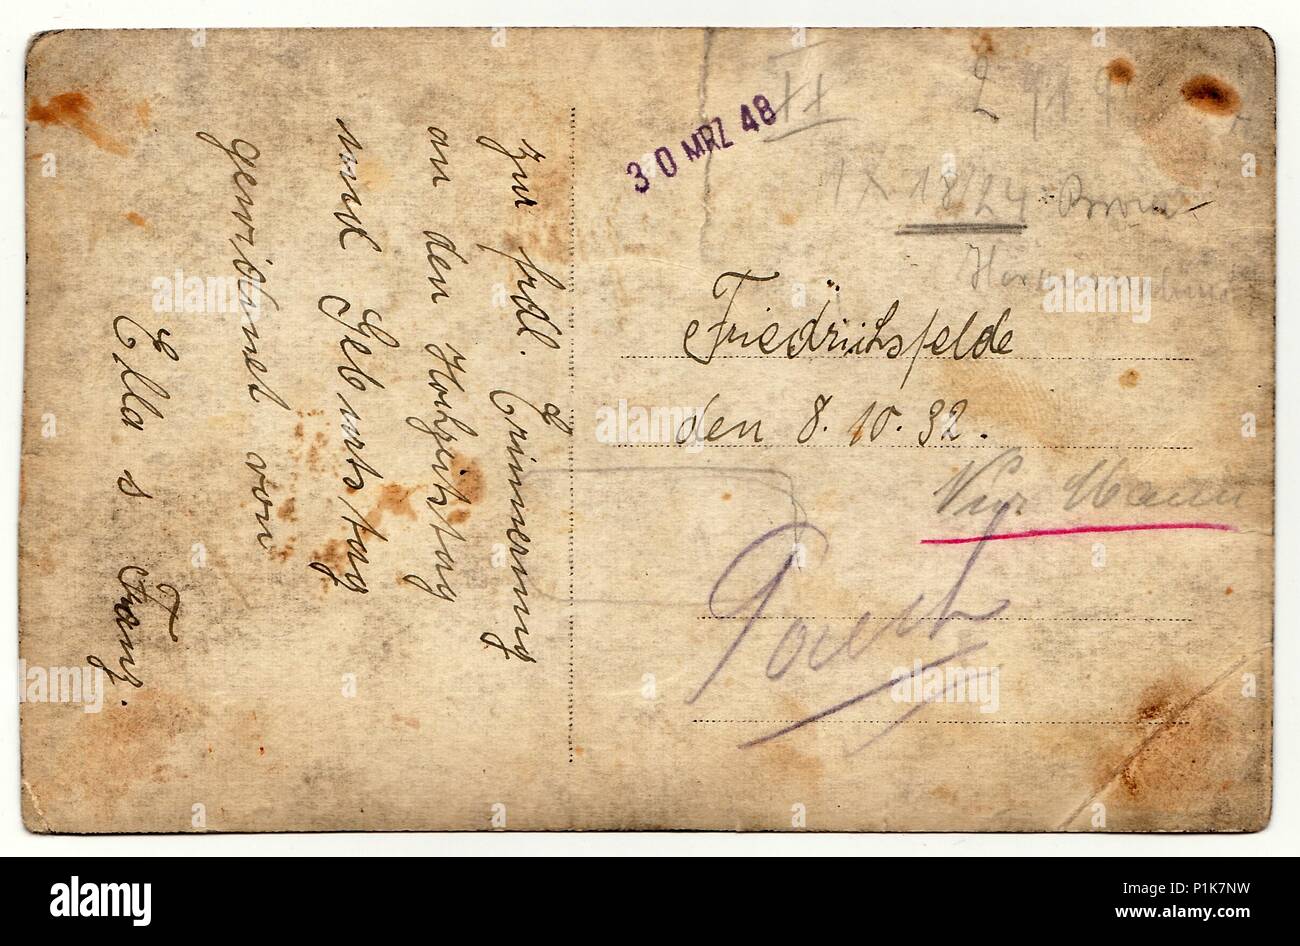 zur frdl. Erinnerung
an den Hochzeitstag
und Geburtstag
gewidmet von
Ella s Franz.
30 MRZ 48
II
18/24
Friedrichsfelde
den 8. 10. 32.
Nur
alamy
Image ID: P1K7NW
www.alamy.com